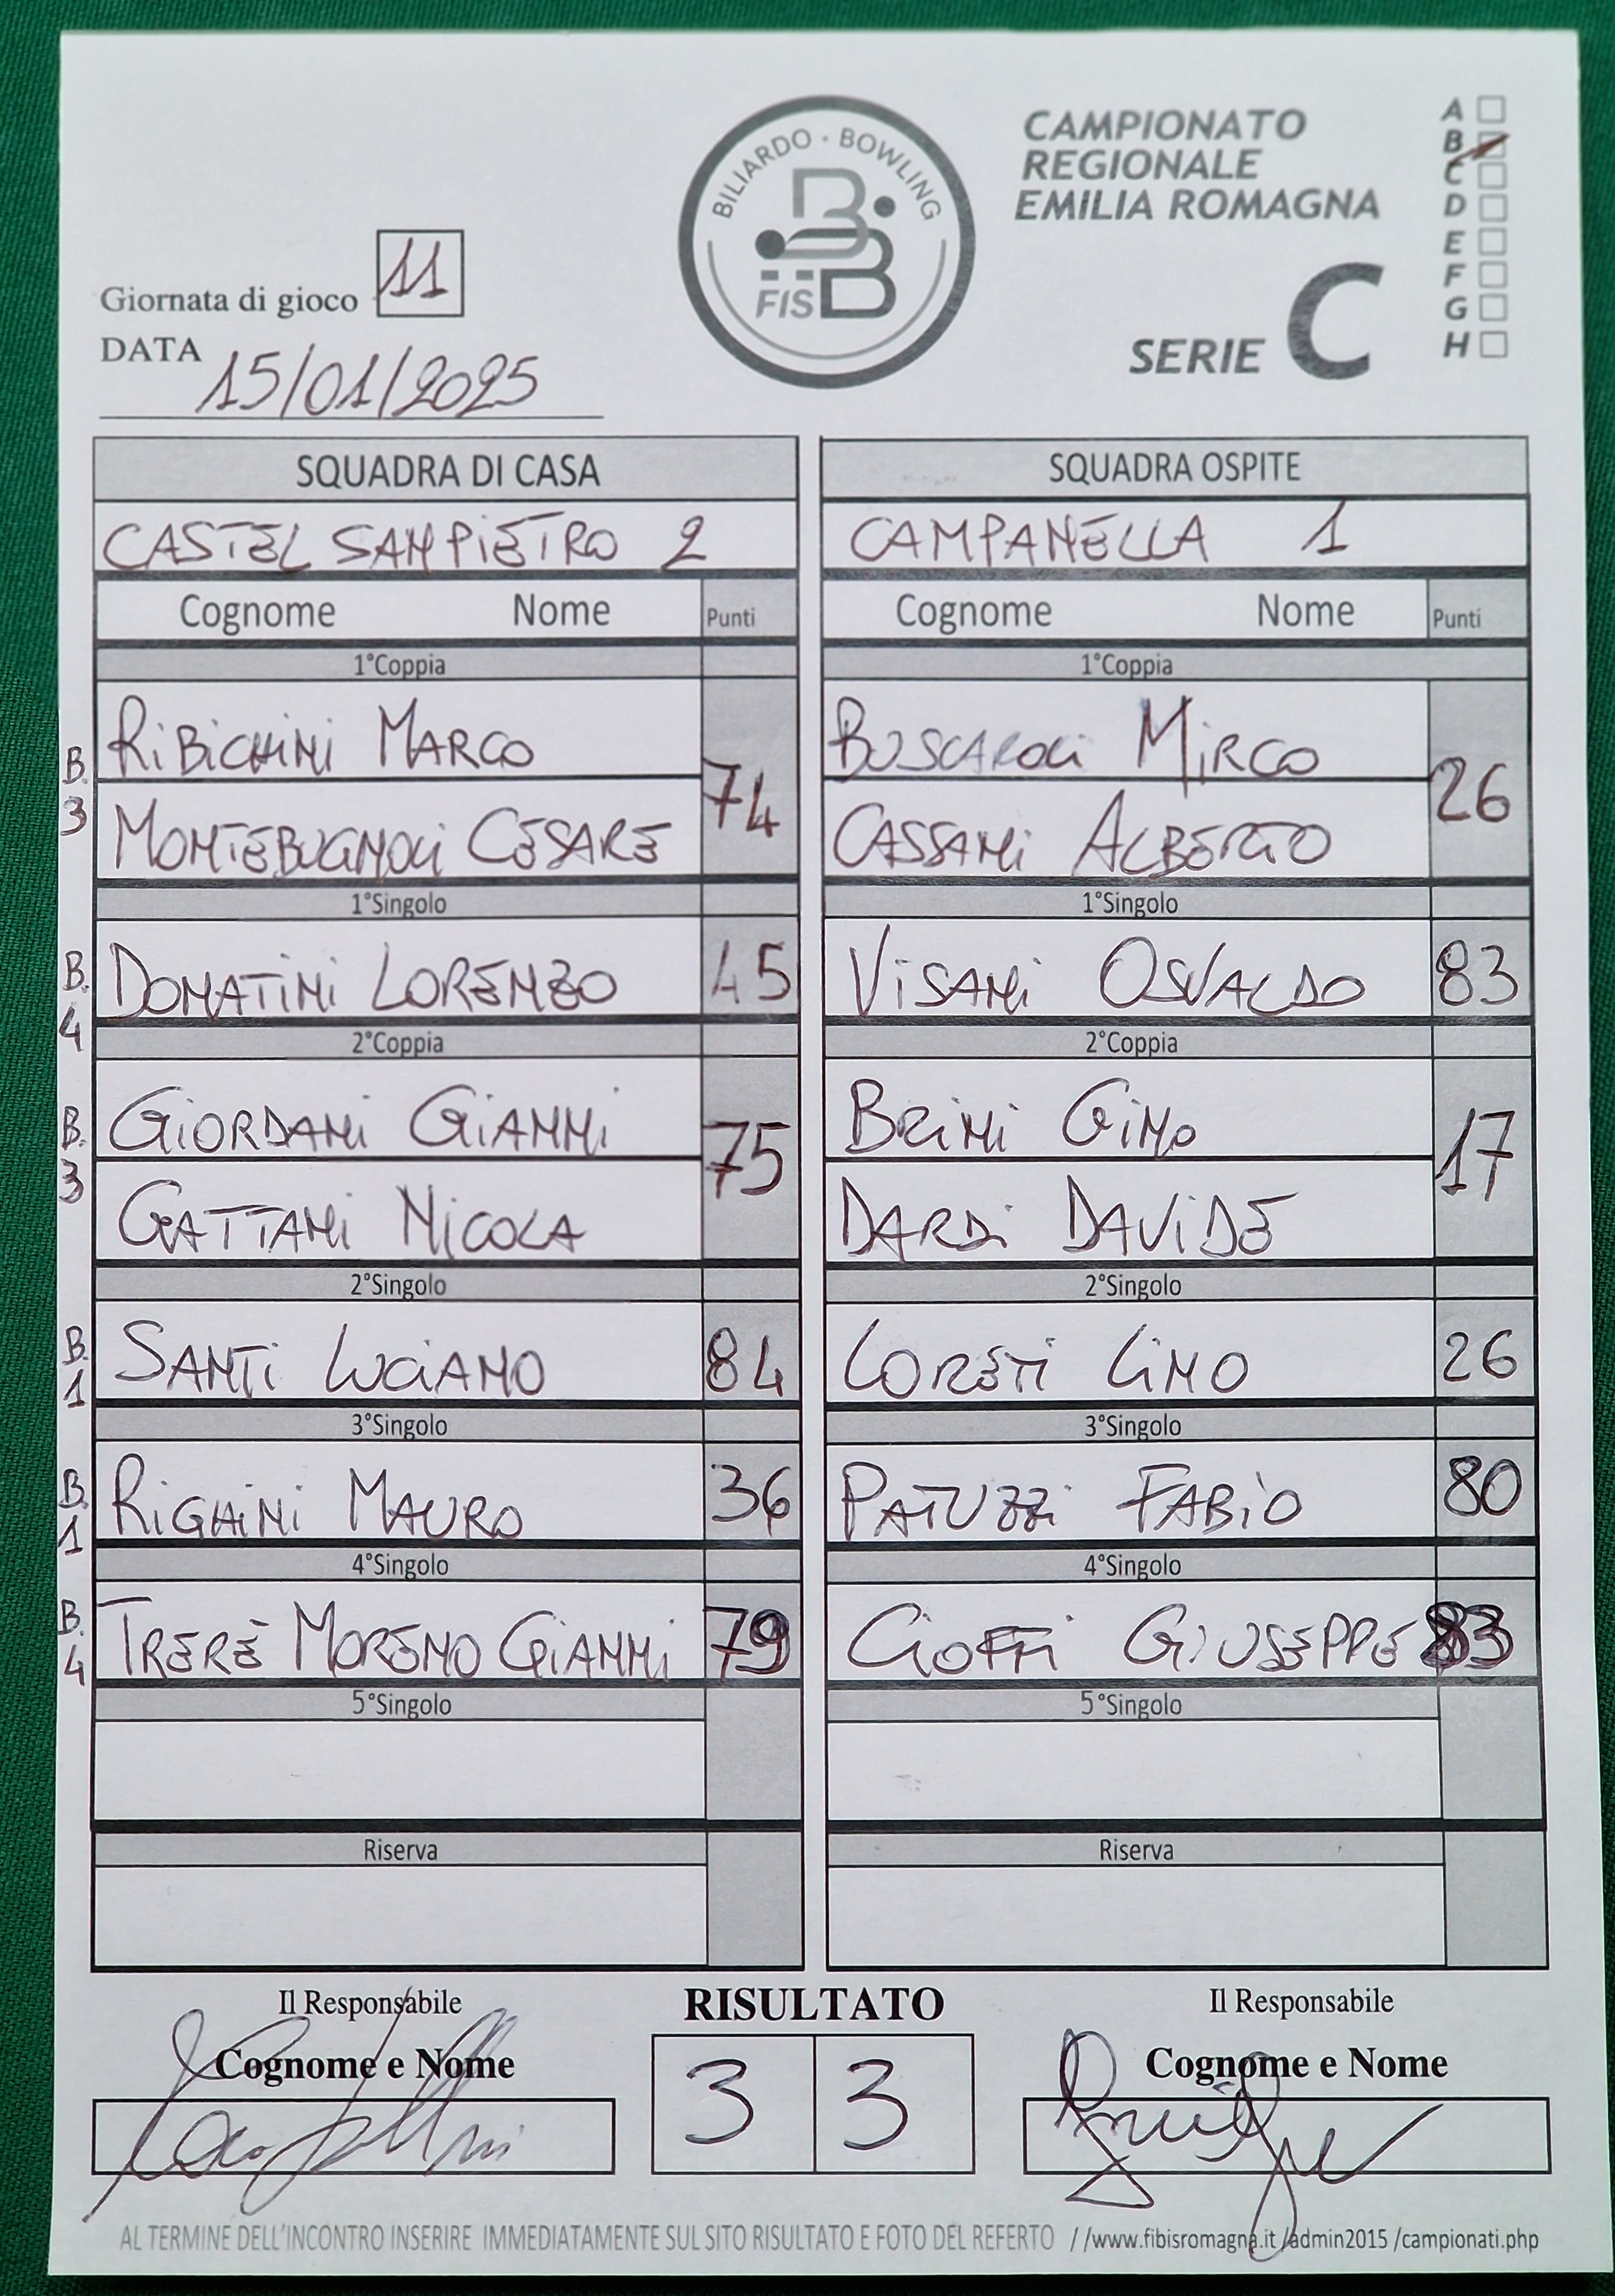 BILIARDO · BOWLING
FISBB
CAMPIONATO
REGIONALE
EMILIA ROMAGNA
SERIE C
A
B
C
D
E
F
G
H
Giornata di gioco 11
DATA 15/01/2025
SQUADRA DI CASA
CASTEL SAN PIETRO 2
Cognome Nome Punti
1°Coppia
B. 3
RIBICHINI MARCO
MONTEBUGNOLI CESARE
74
1°Singolo
B. 4
DONATINI LORENZO 45
2°Coppia
B. 3
GIORDANI GIANNI
GATTANI NICOLA
75
2°Singolo
B. 1
SANTI LUCIANO 84
3°Singolo
B. 1
RIGHINI MAURO 36
4°Singolo
B. 4
TRERÈ MORENO GIANNI 79
5°Singolo
Riserva
SQUADRA OSPITE
CAMPANELLA 1
Cognome Nome Punti
1°Coppia
BUSCAROLI MIRCO
CASSANI ALBERTO
26
1°Singolo
VISANI OSVALDO 83
2°Coppia
BRINI GINO
DARDI DAVIDE
17
2°Singolo
LORETI LINO 26
3°Singolo
PATUZZI FABIO 80
4°Singolo
CIOFFI GIUSEPPE 83
5°Singolo
Riserva
Il Responsabile
Cognome e Nome
RISULTATO
3 3
Il Responsabile
Cognome e Nome
AL TERMINE DELL'INCONTRO INSERIRE IMMEDIATAMENTE SUL SITO RISULTATO E FOTO DEL REFERTO //www.fibisromagna.it /admin2015 /campionati.php